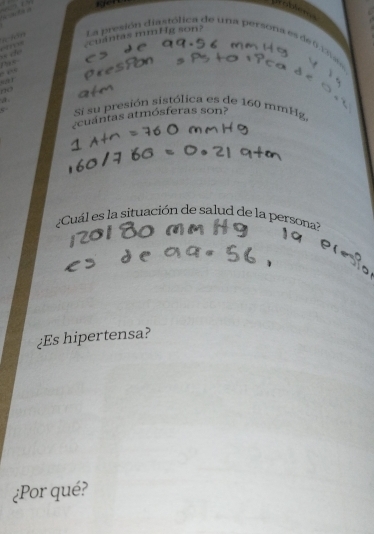 La presión diastólica de una persona es de
¿cuántas mmHg son?
es de 99.56 mmHg y la
presion
atm
Si su presión sistólica es de 160 mmHg,
¿cuántas atmósferas son?
1 Atm = 760 mmHg
160/760 = 0.21 atm
¿Cuál es la situación de salud de la persona?
120/80 mmHg la presion
es de 99.56,
¿Es hipertensa?
¿Por qué?